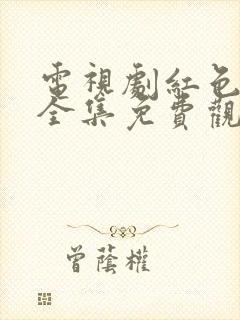 電視劇紅色
全集免費觀
曾蔭權